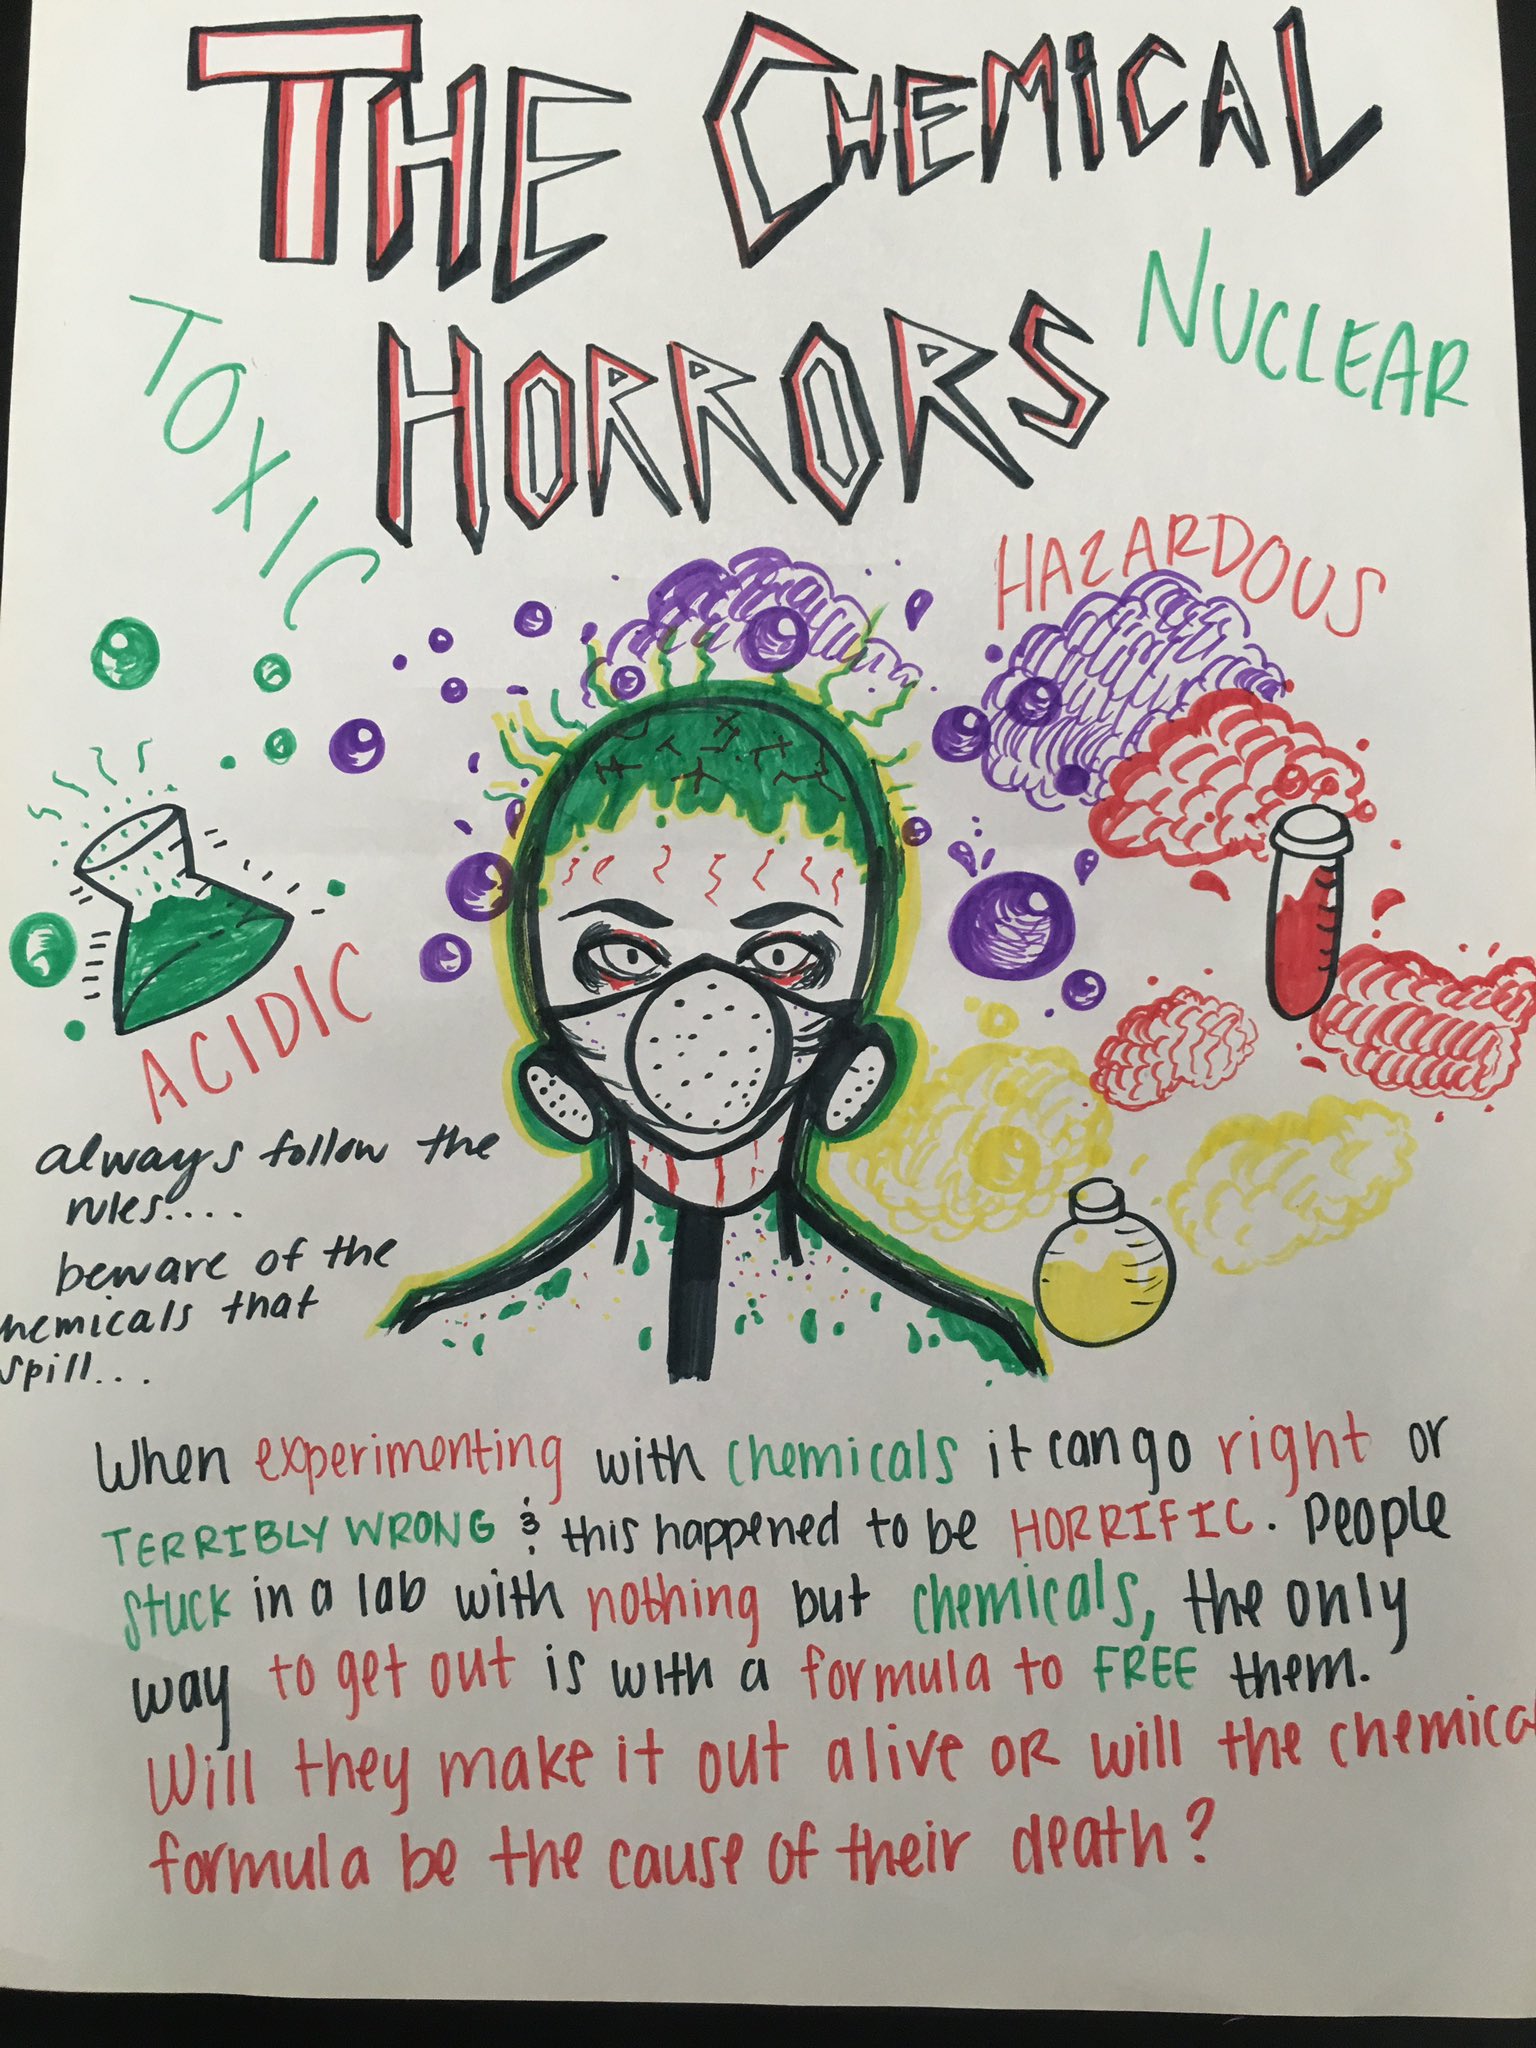 THE CHEMICAL
HORRORS
TOXIC
NUCLEAR
HAZARDOUS
ACIDIC
always follow the
rules....
beware of the
hemicals that
spill...
When experimenting with chemicals it can go right or
TERRIBLY WRONG & this happened to be HORRIFIC. People
stuck in a lab with nothing but chemicals, the only
way to get out is with a formula to FREE them.
Will they make it out alive OR will the chemica
formula be the cause of their death?